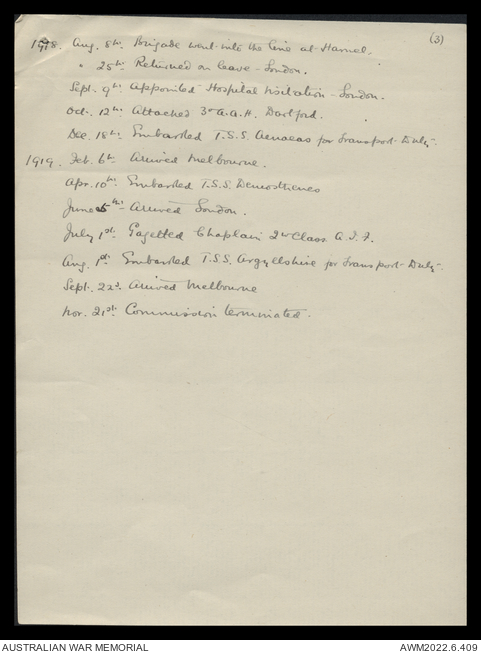 (3)
1918. Aug. 8th. Brigade went into the line at Hamel.
" 25th. Returned on leave - London.
Sept. 9th. Appointed Hospital Visitation - London.
Oct. 12th. Attached 3rd A.A.H. Dartford.
Dec. 18th. Embarked T.S.S. Aenaeas for Transport Duty.
1919. Feb. 6th. Arrived Melbourne.
Apr. 10th. Embarked T.S.S. Demosthenes
June 5th. Arrived London.
July 1st. Gazetted Chaplain 2nd Class A.I.F.
Aug. 1st. Embarked T.S.S. Argyllshire for Transport Duty.
Sept. 22d. Arrived Melbourne
Nov. 21st. Commission terminated.
AUSTRALIAN WAR MEMORIAL
AWM2022.6.409